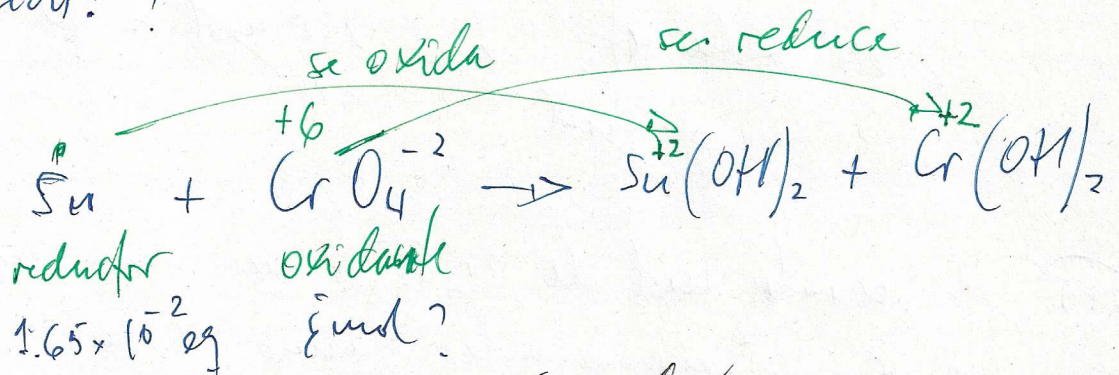 se oxida se reduce
0 +6 +2 +2
Sn + CrO₄⁻² → Sn(OH)₂ + Cr(OH)₂
reductor oxidante
1.65 × 10⁻² eq ¿mol?